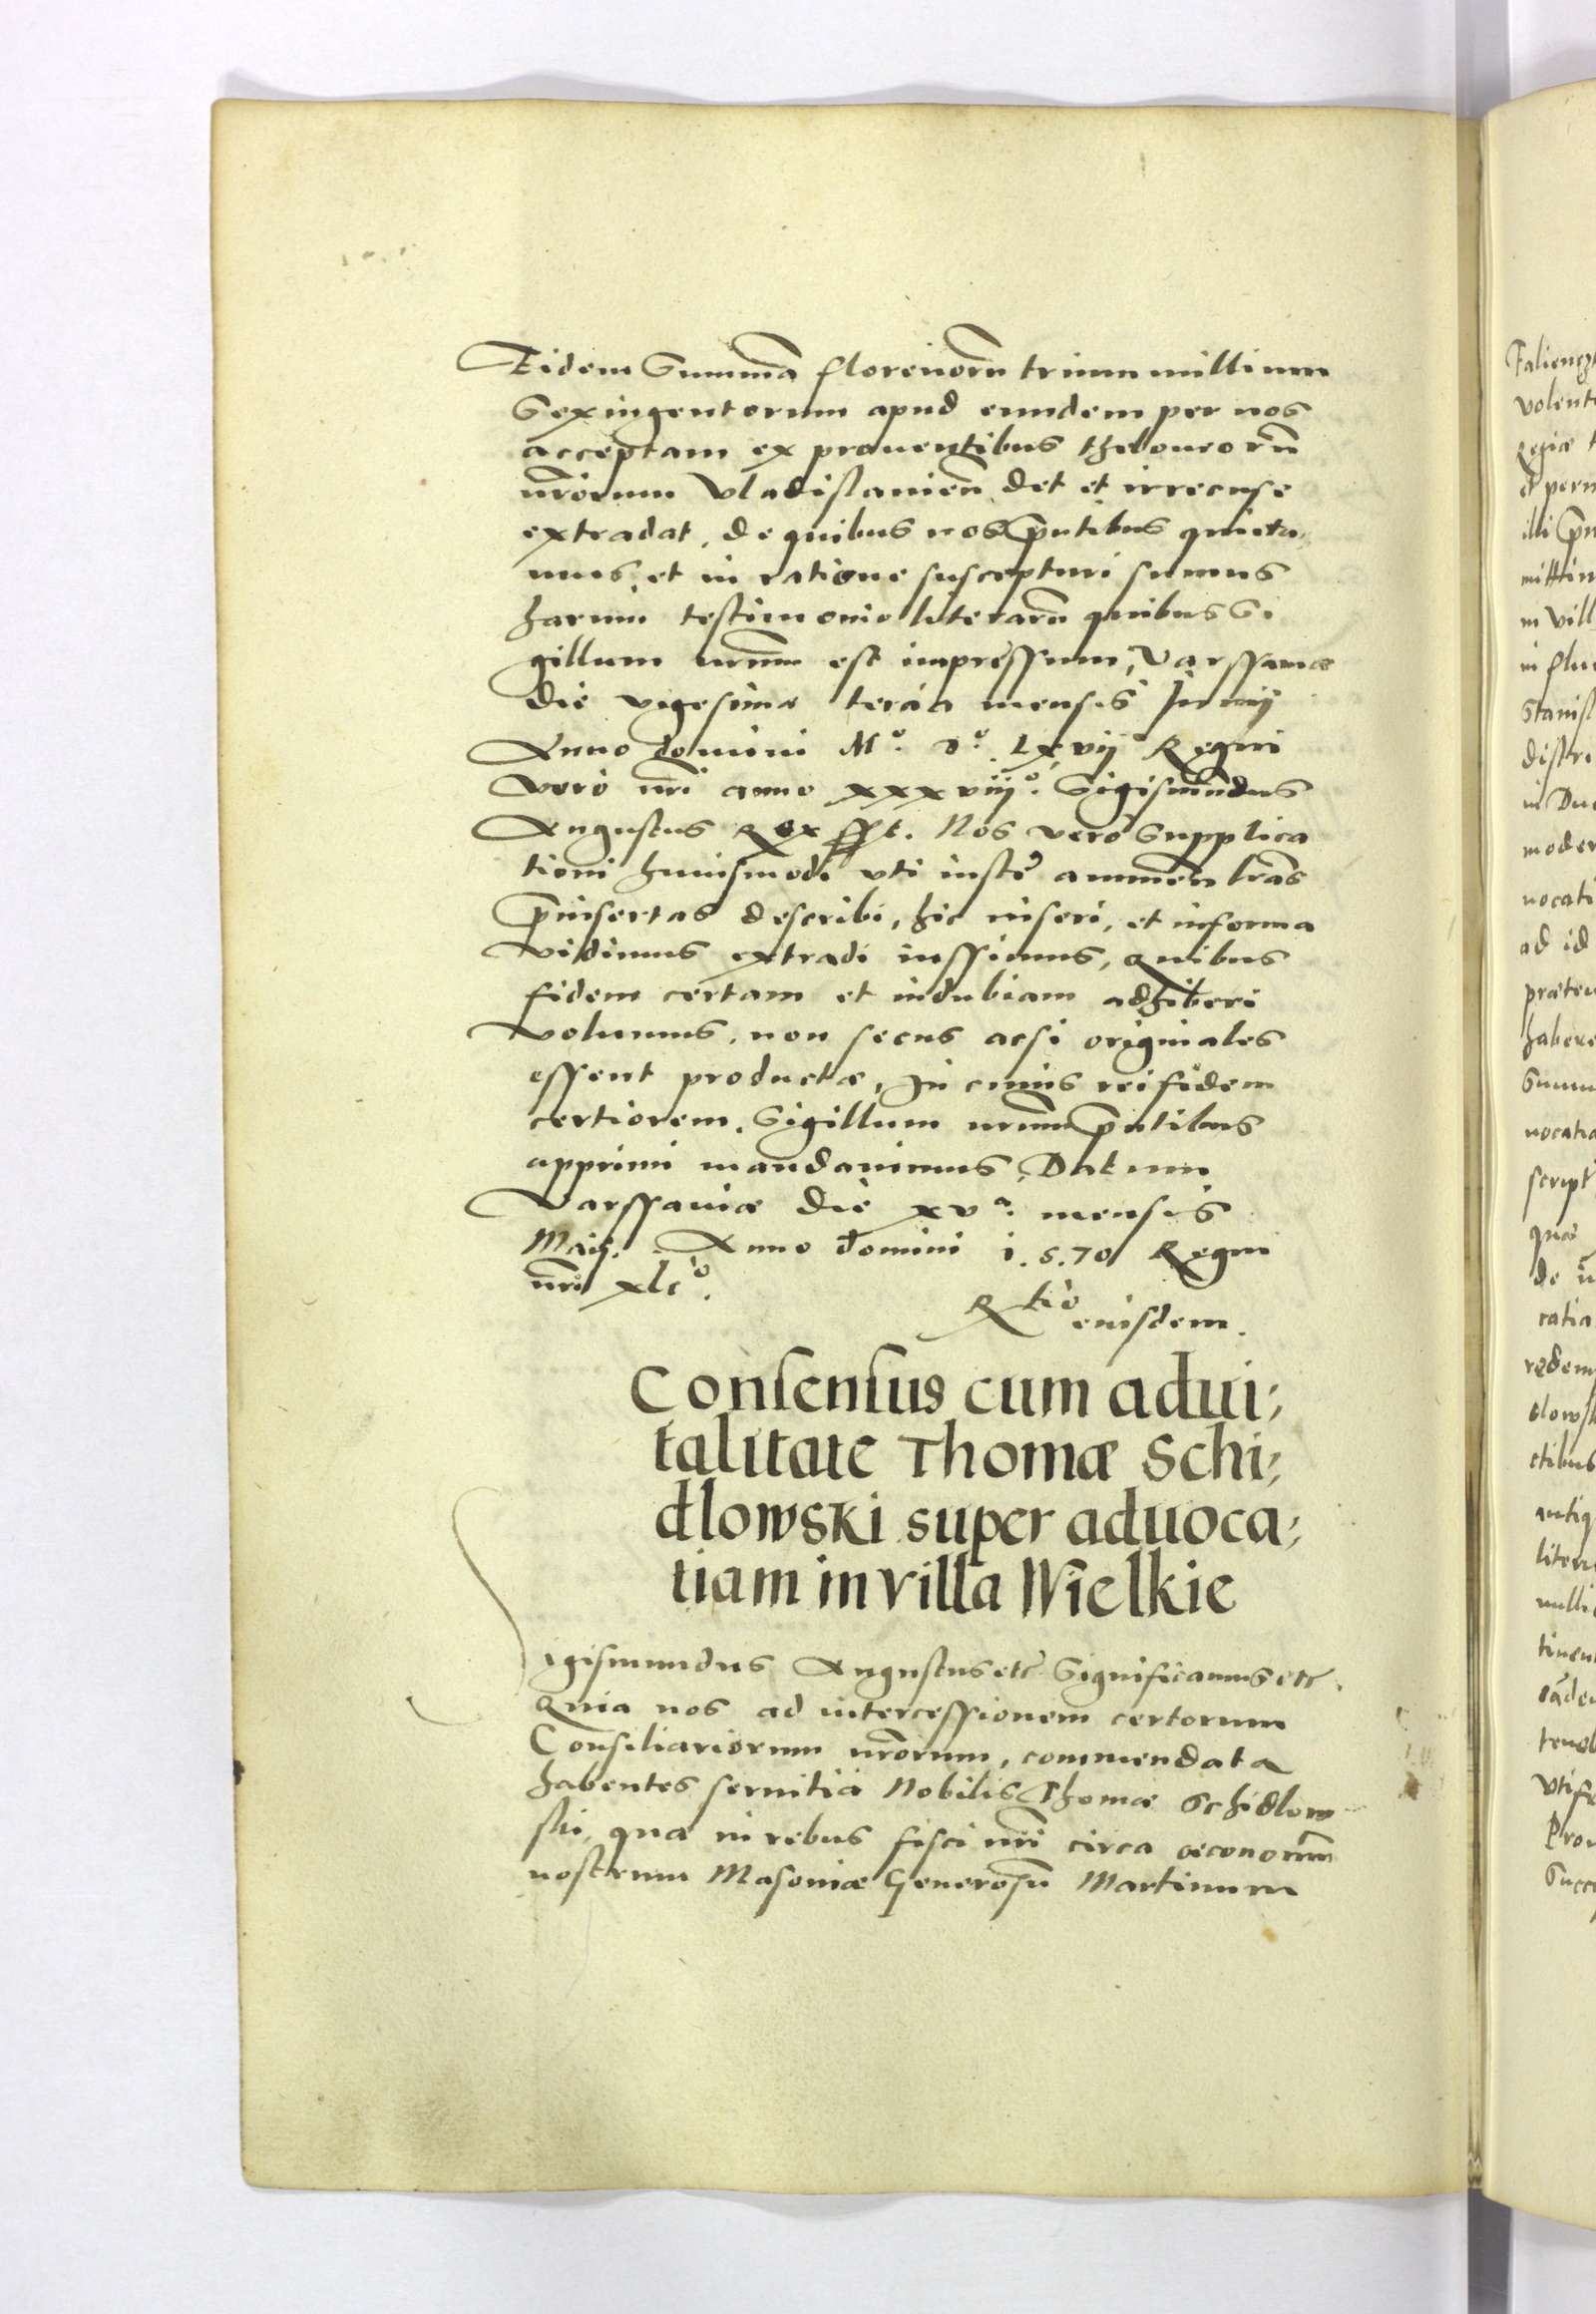 Eidem Sum̃mã florenorũ trium millium
Sexingentorum apud eundem per nos
acceptam ex prouentibus theloneorũ
nr̃orum Vladislauien̄ det et irrecuse
extradat, de quibus nos p̃ntibus quieta
mus, et in ratione suscepturi sumus
harum testimonio literarũ quibus Si
gillum nr̃um est impressum, Varssauiæ
die vigesima tercia mensis Junij
Anno domini Mº. Dº. Lxvij Regni
vero nr̃i anno xxxviijº. Sigismũndus
Augustus Rex sst. Nos vero supplica
tioni huiusmodi vti iustæ annuen̄ lr̃as
p̃insertas describi, hic inseri, et in forma
vidimus extradi iussimus, quibus
fidem certam et indubiam adhiberi
volumus, non secus acsi originales
essent productæ, In cuius rei fidem
certiorem, Sigillum nr̃um p̃ntibus
apprimi mandauimus, Datum
Varssauiæ die xvª. mensis
Maij. Anno domini i.5.70 Regni
nr̃i xliº.
Rtio eiusdem.
Consensus cum adui;
talitate Thomæ Schi;
dlowski super aduoca;
tiam in villa Wielkie
Sigismundus Augustus etc̃ Significamus etc̃.
Quia nos ad intercessionem certorum
Consiliariorum nr̃orum, commendata
habentes seruitia Nobilis Thomæ Schidlow
ski, quæ in rebus fisci nr̃i circa oeconomũ
nostrum Masouiæ Generosũ Martinum
Falien
volent
Regiæ
et perm
illi p̃n
mittim
in vill
in flu
Stanisl
distri
in Du
moder
uocati
ad id
præten
habere
Summ
uocatia
script
quæ
de n
ratia
redem
dlowsk
ctibus
antiq
litera
nulli
tinen
eãde
teneb
Vti
Prou
Succe